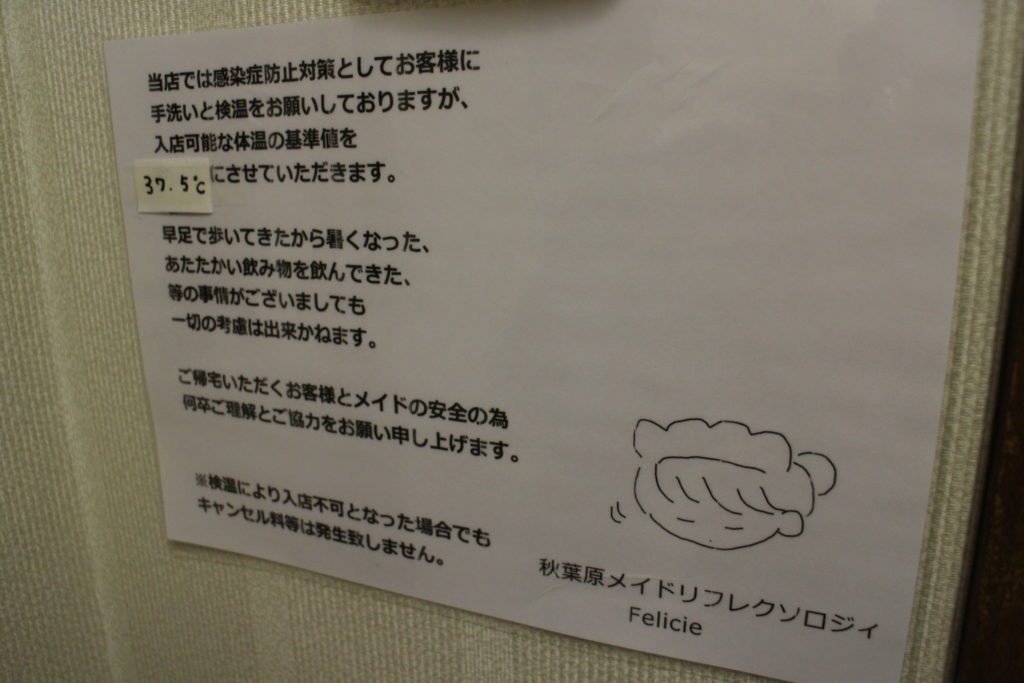 当店では感染症防止対策としてお客様に
手洗いと検温をお願いしておりますが、
入店可能な体温の基準値を
37.5℃にさせていただきます。
早足で歩いてきたから暑くなった、
あたたかい飲み物を飲んできた、
等の事情がございましても
一切の考慮は出来かねます。
ご帰宅いただくお客様とメイドの安全の為
何卒ご理解とご協力をお願い申し上げます。
※検温により入店不可となった場合でも
キャンセル料等は発生致しません。
秋葉原メイドリフレクソロジィ
Felicie